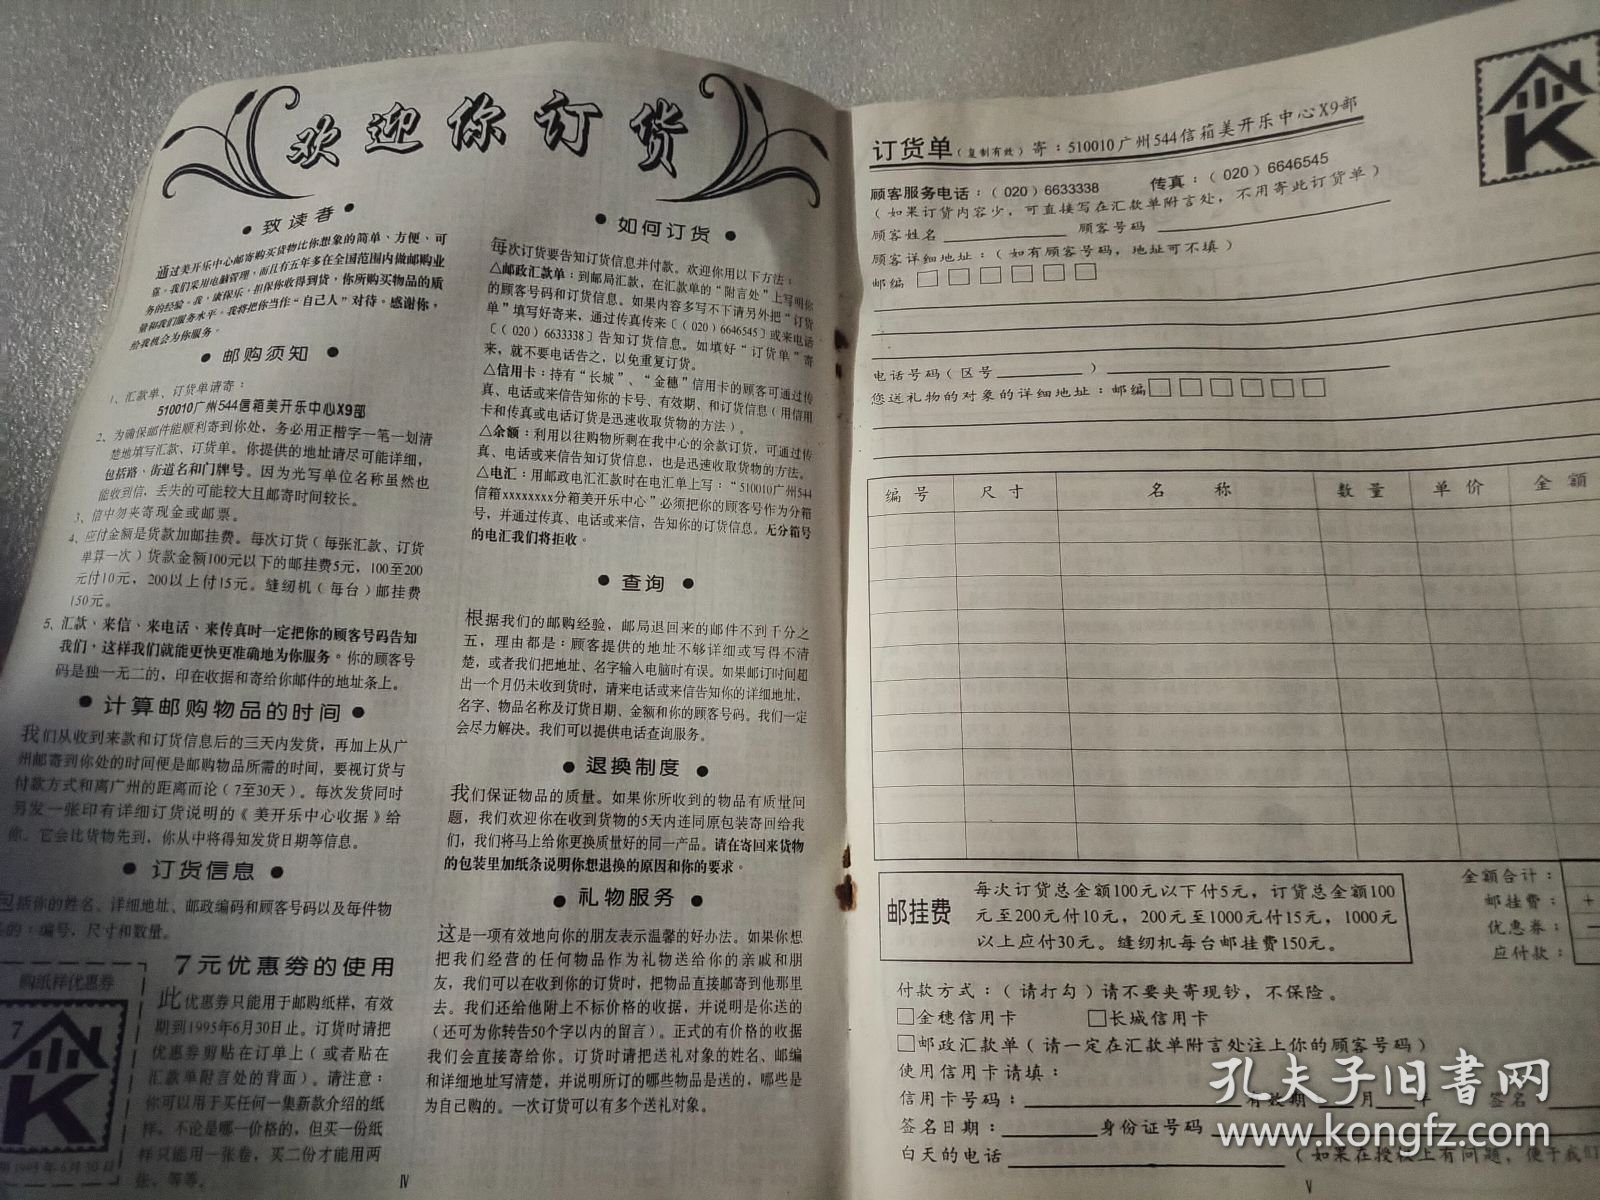 欢迎你订货
致读者
通过美开乐中心邮寄购买货物比你想象的简单、方便、可
靠。我们采用电脑管理，而且有五年多在全国范围内做邮购业
务的经验。我，康保乐，担保你收得到货，你所购买物品的质
量和我们服务水平。我将把你当作“自己人”对待。感谢你，
给我机会为你服务。
邮购须知
1、汇款单、订货单请寄：
510010广州544信箱美开乐中心X9部
2、为确保邮件能顺利寄到你处，务必用正楷字一笔一划清
楚地填写汇款、订货单。你提供的地址请尽可能详细，
包括路、街道名和门牌号。因为光写单位名称虽然也
能收到信，丢失的可能较大且邮寄时间较长。
3、信中勿夹寄现金或邮票。
4、应付金额是货款加邮挂费。每次订货（每张汇款、订货
单算一次）货款金额100元以下的邮挂费5元，100至200
元付10元，200以上付15元。缝纫机（每台）邮挂费
150元。
5、汇款、来信、来电话、来传真时一定把你的顾客号码告知
我们，这样我们就能更快更准确地为你服务。你的顾客号
码是独一无二的，印在收据和寄给你邮件的地址条上。
计算邮购物品的时间
我们从收到来款和订货信息后的三天内发货，再加上从广
州邮寄到你处的时间便是邮购物品所需的时间，要视订货与
付款方式和离广州的距离而论（7至30天）。每次发货同时
另发一张印有详细订货说明的《美开乐中心收据》给
你。它会比货物先到，你从中将得知发货日期等信息。
订货信息
包括你的姓名、详细地址、邮政编码和顾客号码以及每件物
的：编号，尺寸和数量。
7元优惠券的使用
购纸样优惠券
7
K
1995年6月30日
此优惠券只能用于邮购纸样，有效
期到1995年6月30日止。订货时请把
优惠券剪贴在订单上（或者贴在
汇款单附言处的背面）。请注意：
你可以用于买任何一集新款介绍的纸
样。不论是哪一价格的，但买一份纸
样只能用一张卷，买二份才能用两
张，等等。
IV
如何订货
每次订货要告知订货信息并付款。欢迎你用以下方法：
△邮政汇款单：到邮局汇款，在汇款单的“附言处”上写明你
的顾客号码和订货信息。如果内容多写不下请另外把“订货
单”填写好寄来，通过传真传来〔（020）6646545〕或来电话
〔（020）6633338〕告知订货信息。如填好“订货单”寄
来，就不要电话告之，以免重复订货。
△信用卡：持有“长城”、“金穗”信用卡的顾客可通过传
真、电话或来信告知你的卡号、有效期、和订货信息（用信用
卡和传真或电话订货是迅速收取货物的方法）。
△余额：利用以往购物所剩在我中心的余款订货，可通过传
真、电话或来信告知订货信息，也是迅速收取货物的方法。
△电汇：用邮政电汇汇款时在电汇单上写：“510010广州544
信箱xxxxxxxx分箱美开乐中心”必须把你的顾客号作为分箱
号，并通过传真、电话或来信，告知你的订货信息。无分箱号
的电汇我们将拒收。
查询
根据我们的邮购经验，邮局退回来的邮件不到千分之
五，理由都是：顾客提供的地址不够详细或写得不清
楚，或者我们把地址、名字输入电脑时有误。如果邮订时间超
出一个月仍未收到货时，请来电话或来信告知你的详细地址，
名字、物品名称及订货日期、金额和你的顾客号码。我们一定
会尽力解决。我们可以提供电话查询服务。
退换制度
我们保证物品的质量。如果你所收到的物品有质量问
题，我们欢迎你在收到货物的5天内连同原包装寄回给我
们，我们将马上给你更换质量好的同一产品。请在寄回来货物
的包装里加纸条说明你想退换的原因和你的要求。
礼物服务
这是一项有效地向你的朋友表示温馨的好办法。如果你想
把我们经营的任何物品作为礼物送给你的亲戚和朋
友，我们可以在收到你的订货时，把物品直接邮寄到他那里
去。我们还给他附上不标价格的收据，并说明是你送的
（还可为你转告50个字以内的留言）。正式的有价格的收据
我们会直接寄给你。订货时请把送礼对象的姓名、邮编
和详细地址写清楚，并说明所订的哪些物品是送的，哪些是
为自己购的。一次订货可以有多个送礼对象。
订货单（复制有效）寄：510010广州544信箱美开乐中心X9部
K
顾客服务电话：（020）6633338 传真：（020）6646545
（如果订货内容少，可直接写在汇款单附言处，不用寄此订货单）
顾客姓名 顾客号码
顾客详细地址：（如有顾客号码，地址可不填）
邮编
电话号码（区号 ）
您送礼物的对象的详细地址：邮编
编号 尺寸 名称 数量 单价 金额
金额合计：
邮挂费： +
优惠券： —
应付款：
邮挂费
每次订货总金额100元以下付5元，订货总金额100
元至200元付10元，200元至1000元付15元，1000元
以上应付30元。缝纫机每台邮挂费150元。
付款方式：（请打勾）请不要夹寄现钞，不保险。
□金穗信用卡 □长城信用卡
□邮政汇款单（请一定在汇款单附言处注上你的顾客号码）
使用信用卡请填：
信用卡号码： 有效期 月 年 签名
签名日期： 身份证号码
白天的电话 （如果在授权上有问题，便于我们
V
孔夫子旧书网
www.kongfz.com